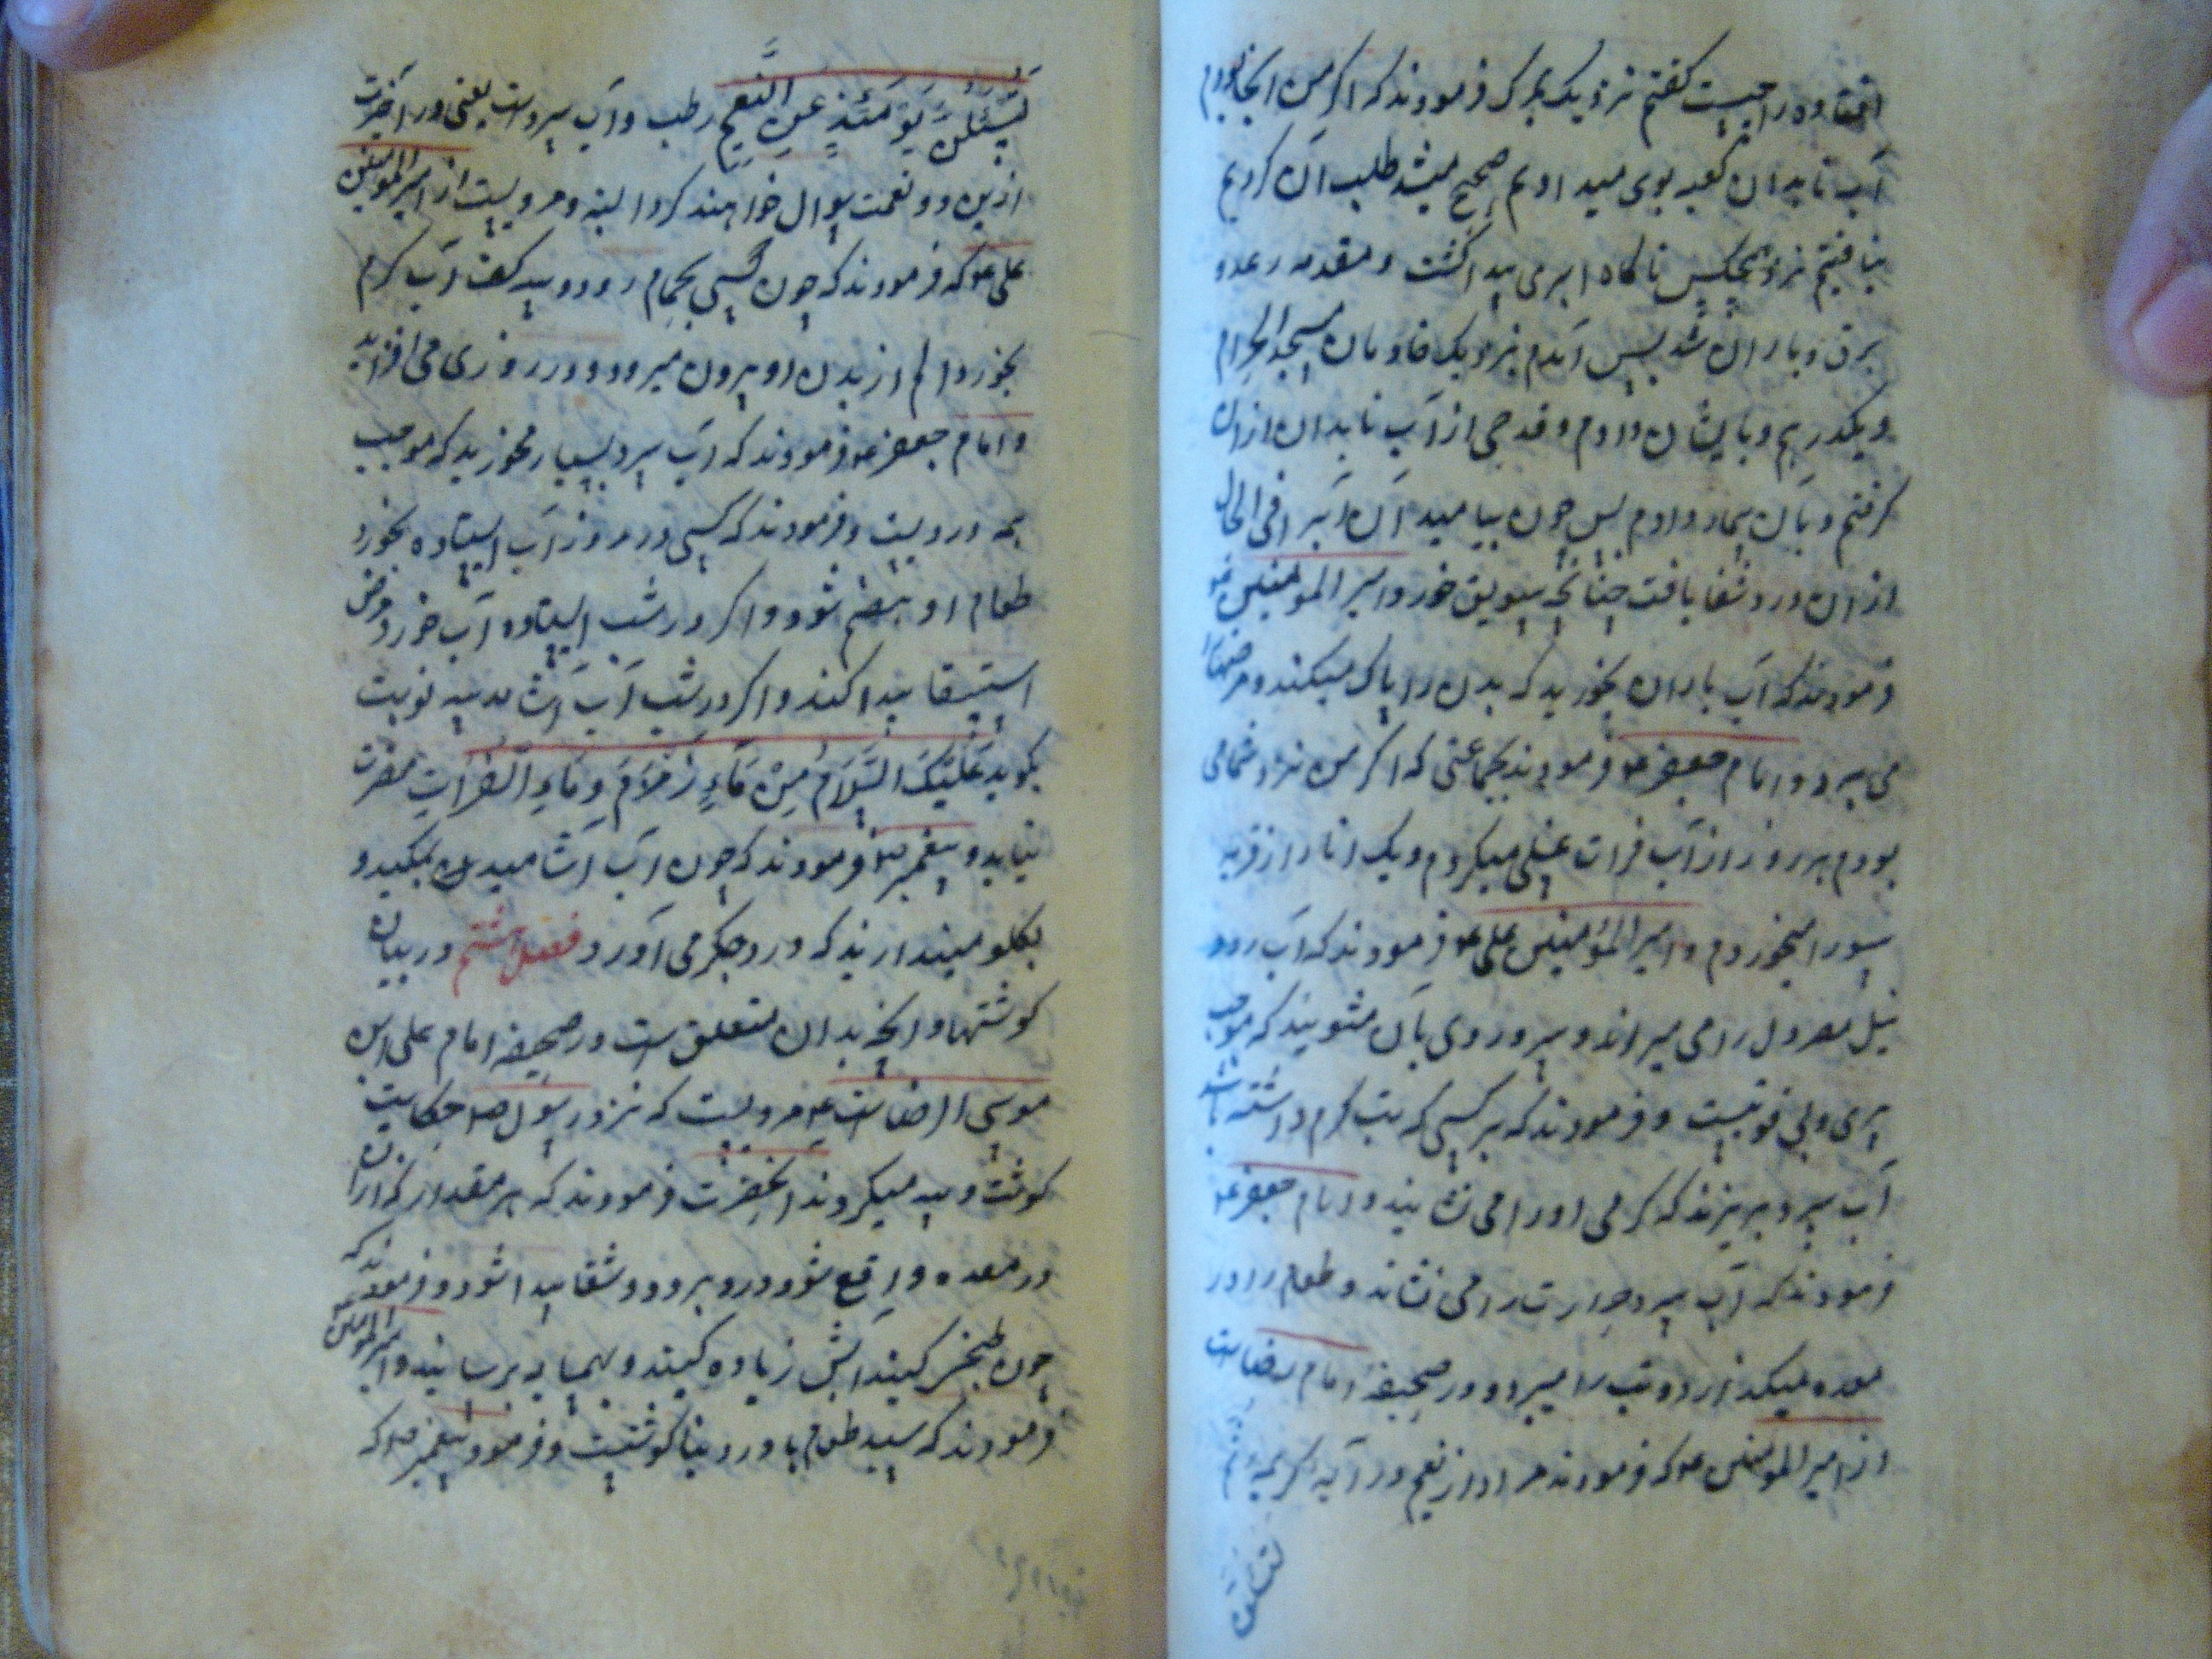 افتاده را چیست کفتم نزدیک بمرک فرمودند که اکر من انجا بودم
آب ناودان کعبه بوی میدادم صحیح میشد طلب آن کردیم
نیافتیم نزد هیچکس ناکاه ابری پیدا کشت و مقدمه رعد و
برق و باران شد پس آمدم نزدیک خادمان مسجد الحرام
و یکدرهم بایشان دادم و قدحی از آب ناودان ازان
کرفتم و بآن بیمار دادم پس چون بیاشامید آن آب را فی الحال
ازان درد شفا یافت چنانچه سویق خورد و امیر المومنین ع
فرمودند که آب باران بخورید که بدن را پاک میکند و مرضها را
می برد و امام جعفر ع فرمودند بجماعتی که اکر من نزد شما می
بودم هر روز از آب فرات غسلی میکردم و یک انار از قریه
سورا میخوردم و امیر المؤمنین علی ع فرمودند که آب رود
نیل مصر دل را می میراند و سر و روی بآن مشویید که موجب
پیری و بی قوتیست و فرمودند که هر کسی که تب کرم داشته باشد
آب سرد بریزند که کرمی او را می نشاند و امام جعفر ع
فرمودند که آب سرد حرارت را می نشاند و طعام را در
معده میکدازد و تب را میبرد و در صحیفه امام رضا است
از امیر المومنین ع که فرمودند مراد از نعیم در آیه کریمه ثم
لتسئلن
لتسئلن یومئذ عن النعیم رطب و آب سرد است یعنی در آخرت
ازین دو نعمت سوال خواهند کرد البته و مرویست از امیر المومنین
علی ع که فرمودند که چون کسی بحمام رود و سه کف آب کرم
بخورد الم از بدن او بیرون میرود و در روزی می افزاید
و امام جعفر ع فرمودند که آب سرد بسیار مخورید که موجب
همه دردیست و فرمودند که کسی در روز آب ایستاده بخورد
طعام او هضم شود و اکر در شب ایستاده آب خورد مرض
استسقا پیدا کند و اکر در شب آب آشامد سه نوبت
بکوید علیک السلام من ماء زمزم و ماء الفرات مضرت
نیابد و پیغمبر ص فرمودند که چون آب آشامید بمکید و
بکلو میندازید که درد جکر می آورد فصل هشتم در بیان
کوشتها و انچه بدان متعلق است در صحیفه امام علی ابن
موسی الرضاست ع مرویست که نزد رسول ص حکایت
کوشت و پیه میکردند انحضرت فرمودند که هر مقدار که ازان
در معده واقع شود درد برود و شفا پیدا شود و فرمودند که
چون طبخ کنید آبش زیاده کنید و بهمسایه برسانید و امیر المومنین
فرمودند که سید طعام ما در دنیا کوشتست و فرمود پیغمبر ص که